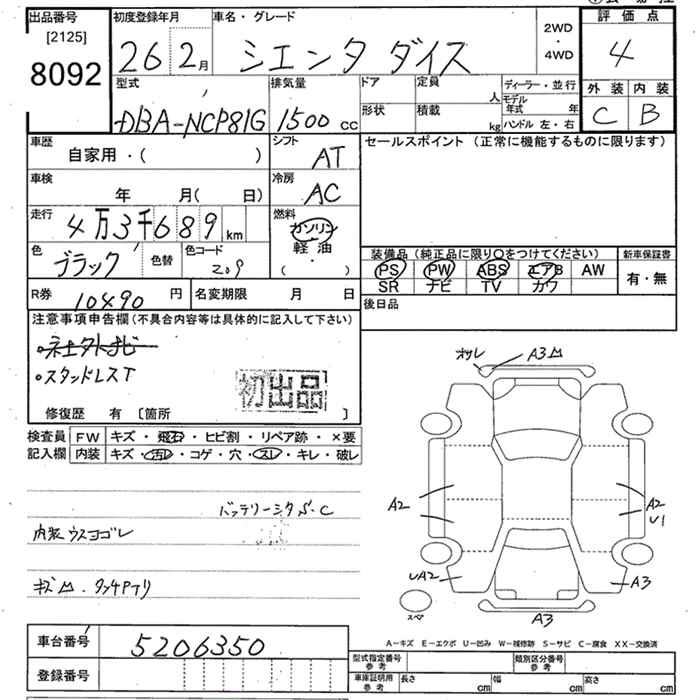 出品番号
[2125]
8092
初度登録年月
26 2月
車名・グレード
シエンタ ダイス
2WD
・
4WD
評価点
4
外装 内装
C B
型式
DBA-NCP81G
排気量
1500 cc
ドア
形状
定員
人
積載
kg
ディーラー・並行
モデル年式 年
ハンドル 左・右
車歴
自家用・( )
シフト
AT
セールスポイント (正常に機能するものに限ります)
車検
年 月( 日)
冷房
AC
走行
4万3千689 km
燃料
ガソリン
軽油
( ・ )
色
ブラック
色替
色コード
209
装備品 (純正品に限り○をつけてください)
PS PW ABS エアB AW
SR ナビ TV カワ
新車保証書
有・無
R券
10490 円
名変期限 月 日
後日品
注意事項申告欄 (不具合内容等は具体的に記入して下さい)
・スタッドレスT
初出品
修復歴 有 〔箇所 〕
検査員
記入欄
FW キズ・飛石・ヒビ割・リペア跡・×要
内装 キズ・汚レ・コゲ・穴・スレ・キレ・破レ
バッテリー
内装ウスヨゴレ
キズ凹・タッチPアリ
A3凹
A2
A2
U1
UA2
A3
スペア
A3
A-キズ E-エクボ U-凹み W-補修跡 S-サビ C-腐食 XX-交換済
車台番号
5206350
登録番号
型式指定番号
参考
類別区分番号
参考
車庫証明用
参考
長さ cm 幅 cm 高さ cm